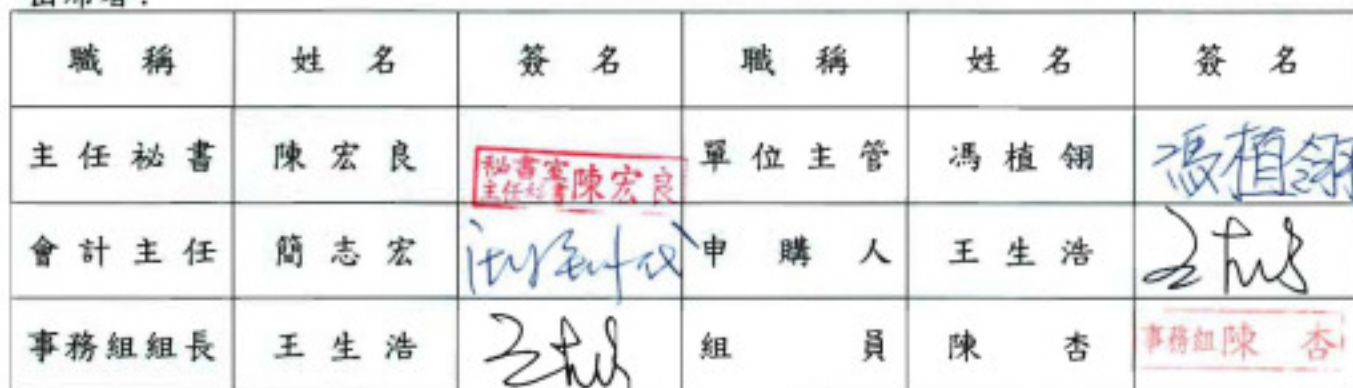 出席者：
職稱 姓名 簽名 職稱 姓名 簽名
主任秘書 陳宏良 秘書室 主任秘書 陳宏良 單位主管 馮植翎 馮植翎
會計主任 簡志宏 申購人 王生浩
事務組組長 王生浩 組員 陳杏 事務組 陳杏